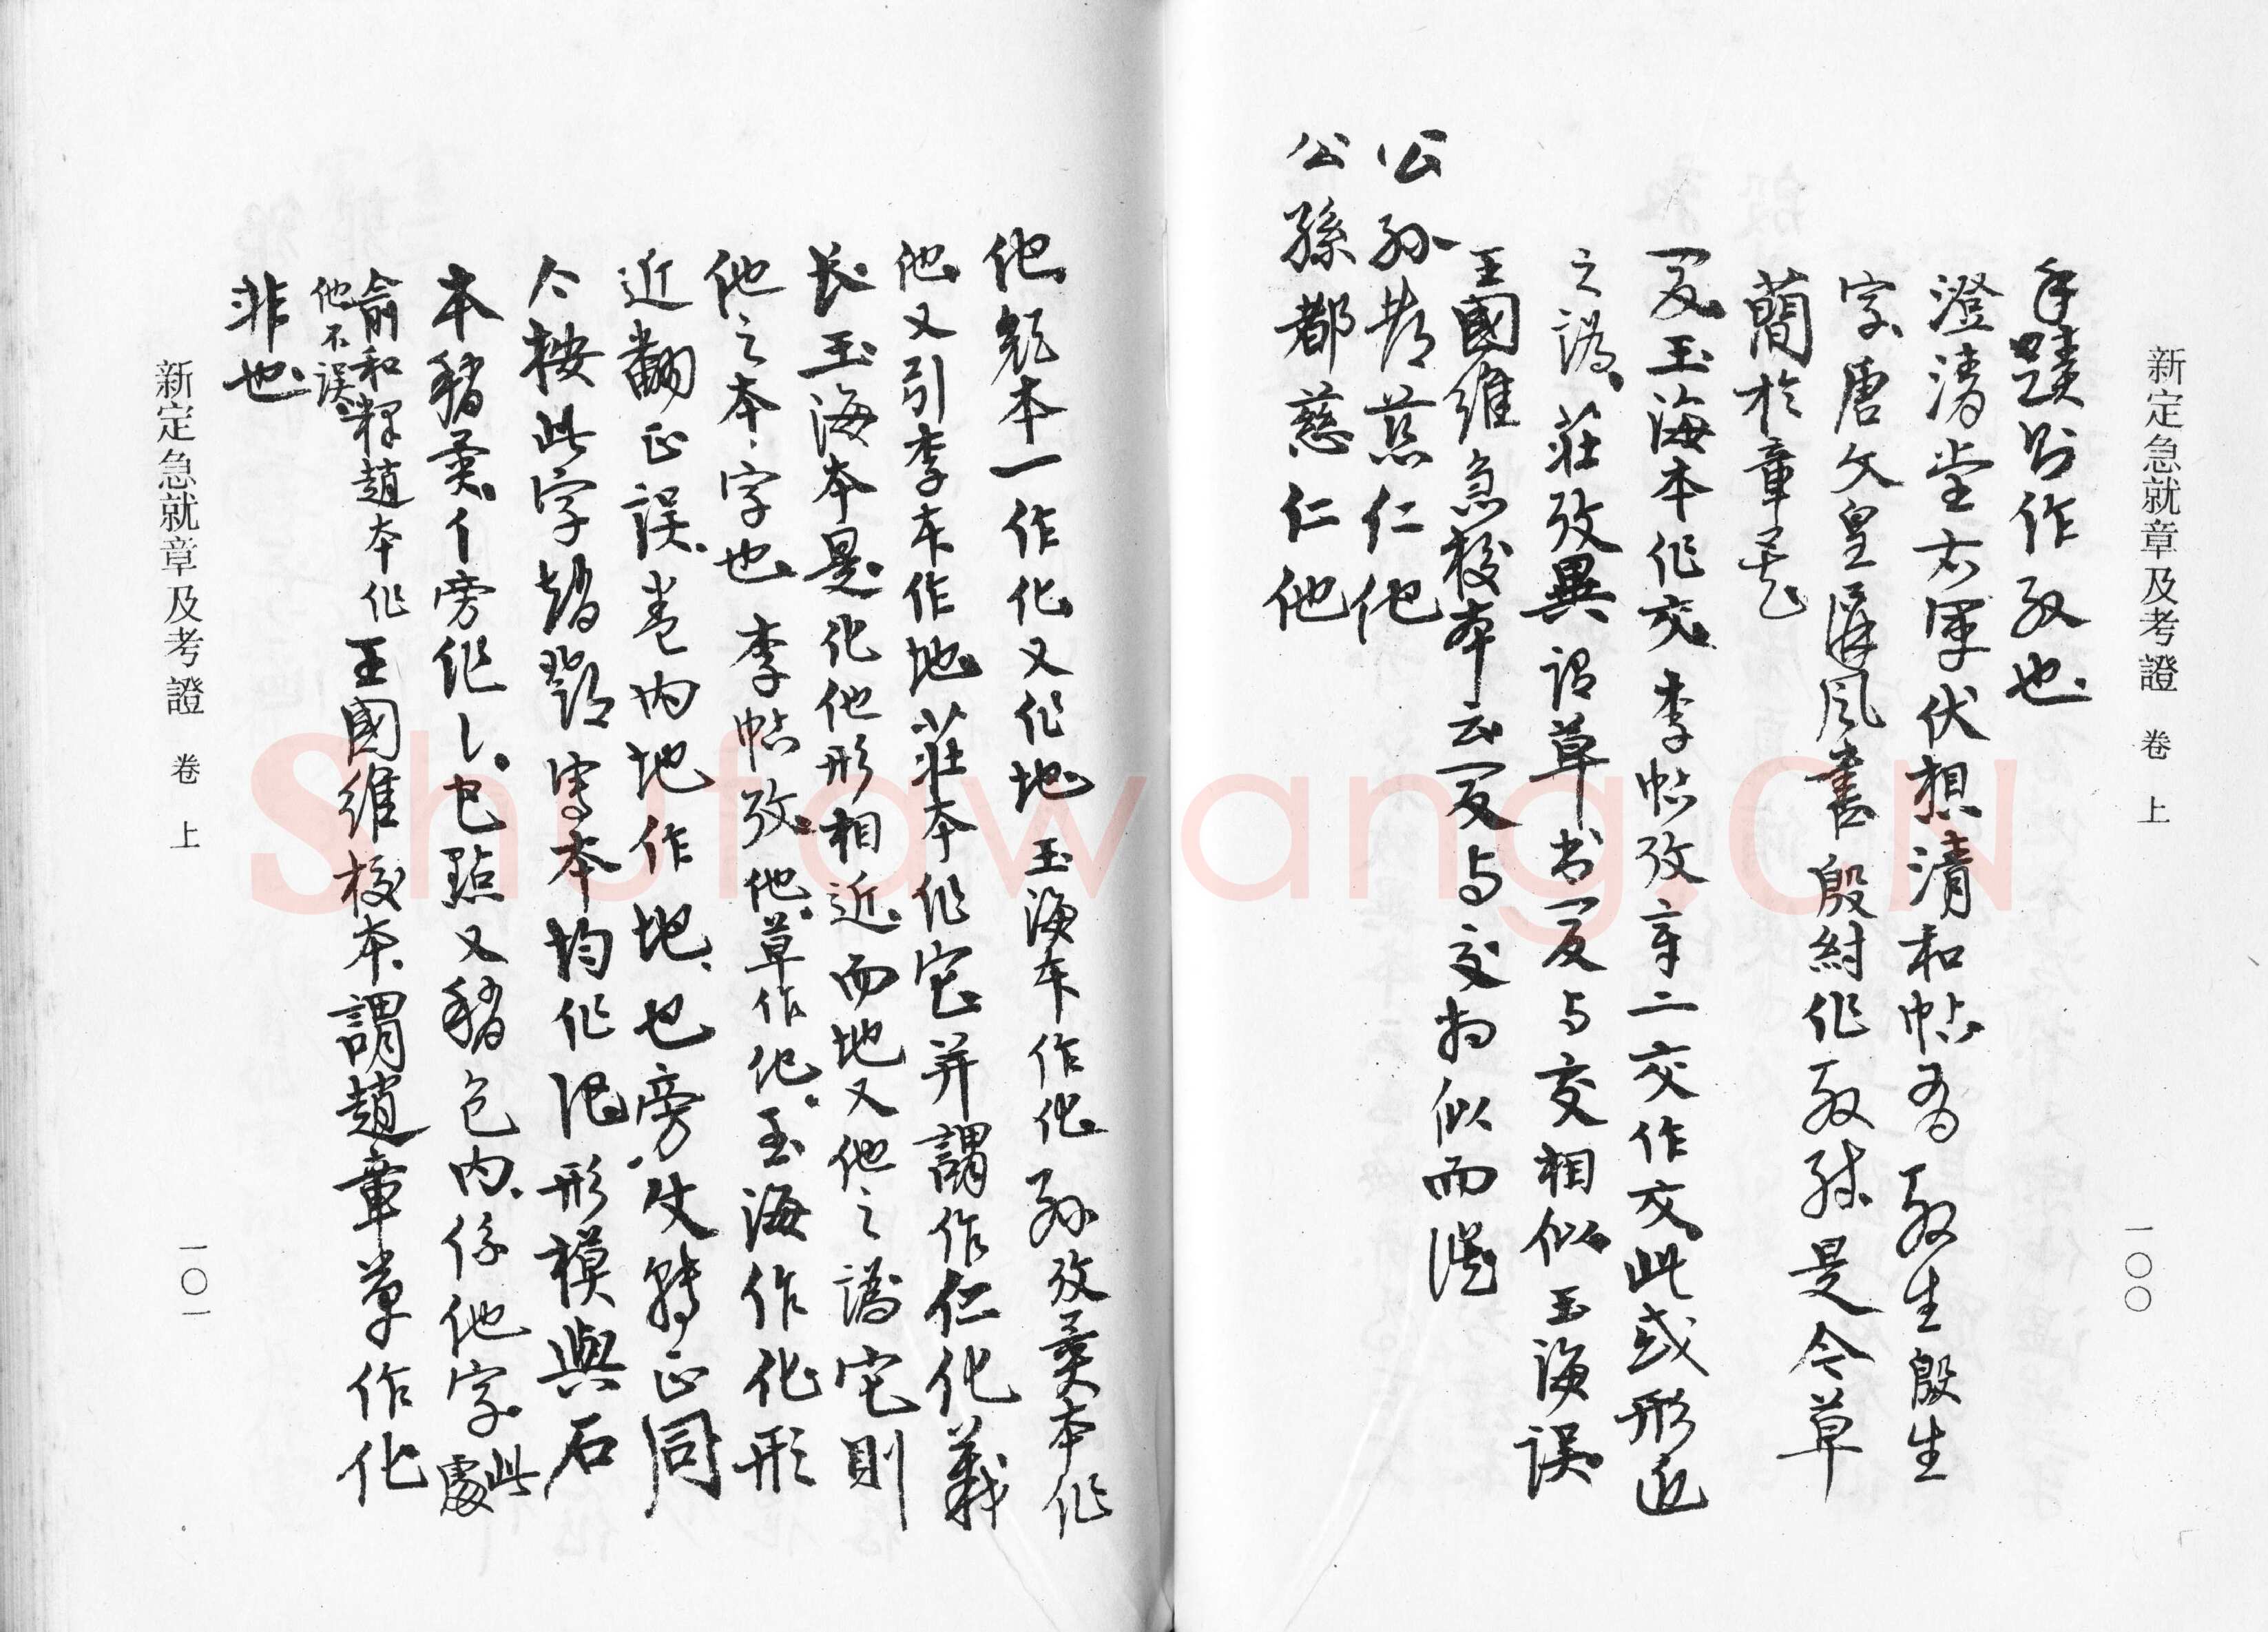 新定急就章及考證 卷上
一〇〇
手蹟另作殷也
澄清堂右軍伏想清和帖為殷生殷生
字唐文皇屏風書殷紂作殷殊是今草
蕳於章矣
叚玉海本作交李帖攷章二交作交此或形近
之譌莊攷異謂草书叚与交相似玉海誤
王國維急校本云叚与交相似而譌
公孙都慈仁他
公孫都慈仁他
他颜本一作化又作地玉海本作化孙攷異本作
他又引李本作地莊本作宅并謂作仁化義
长玉海本是化他形相近而地又他之譌宅則
他之本字也李帖攷他草作化玉海作化形
近翻正誤卷内地作地也旁使轉正同
今按此字趙鄧寫本均作他形模與石
本稍異亻旁作乀也點又稍包内係他字此處
俞和釋趙本作他不誤王國維校本謂趙章草作化
非也
新定急就章及考證 卷上
一〇一
Shufawang.CN